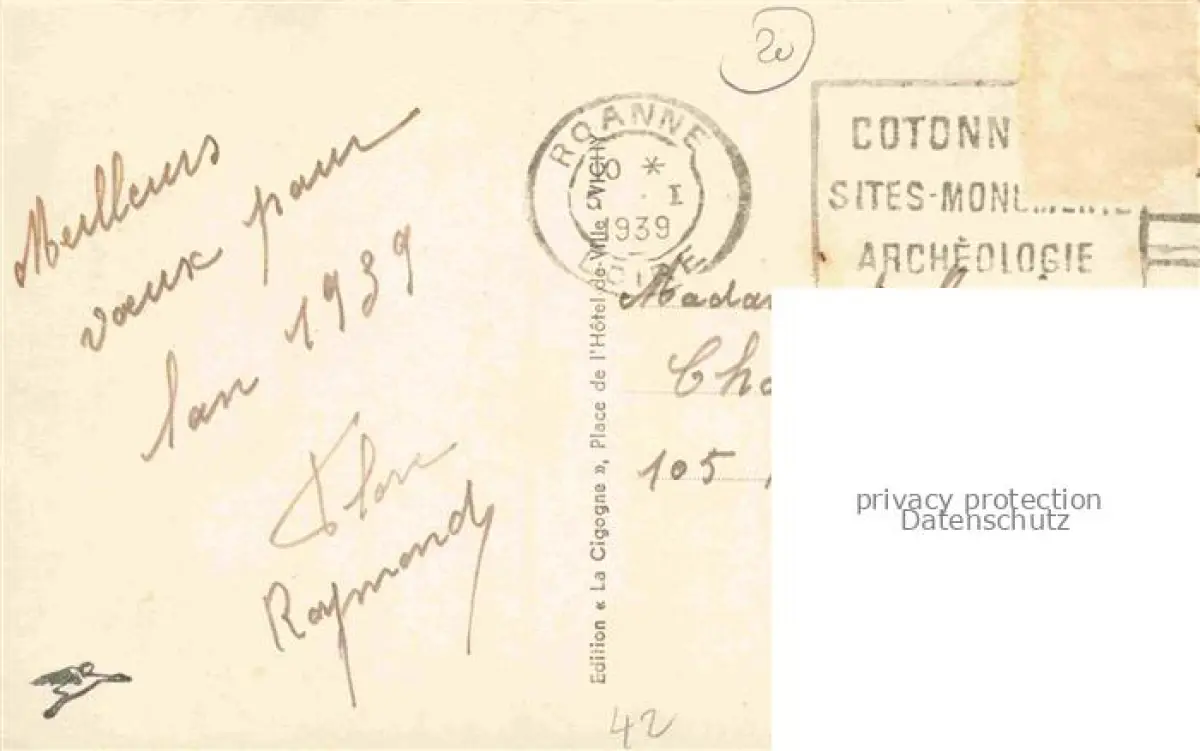 Meilleurs
vœux pour
l'an 1939
Flore
Raymond
Edition « La Cigogne », Place de l'Hôtel de Ville - VICHY
20
ROANNE
*
I
1939
LOIRE
COTONN
SITES-MONUMENTS
ARCHÈOLOGIE
Madam
Cha
105
privacy protection
Datenschutz
42